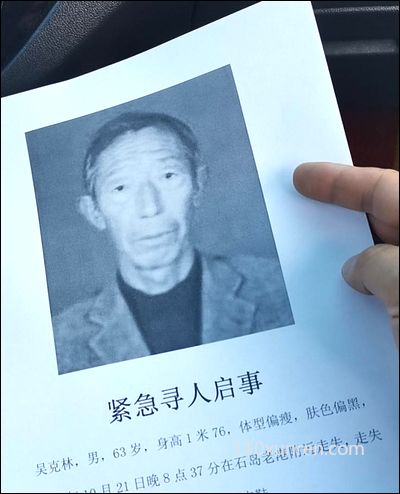 紧急寻人启事
吴克林，男，63岁，身高1米76，体型偏瘦，肤色偏黑，
10月21日晚8点37分在石岛老港附近走失，走失